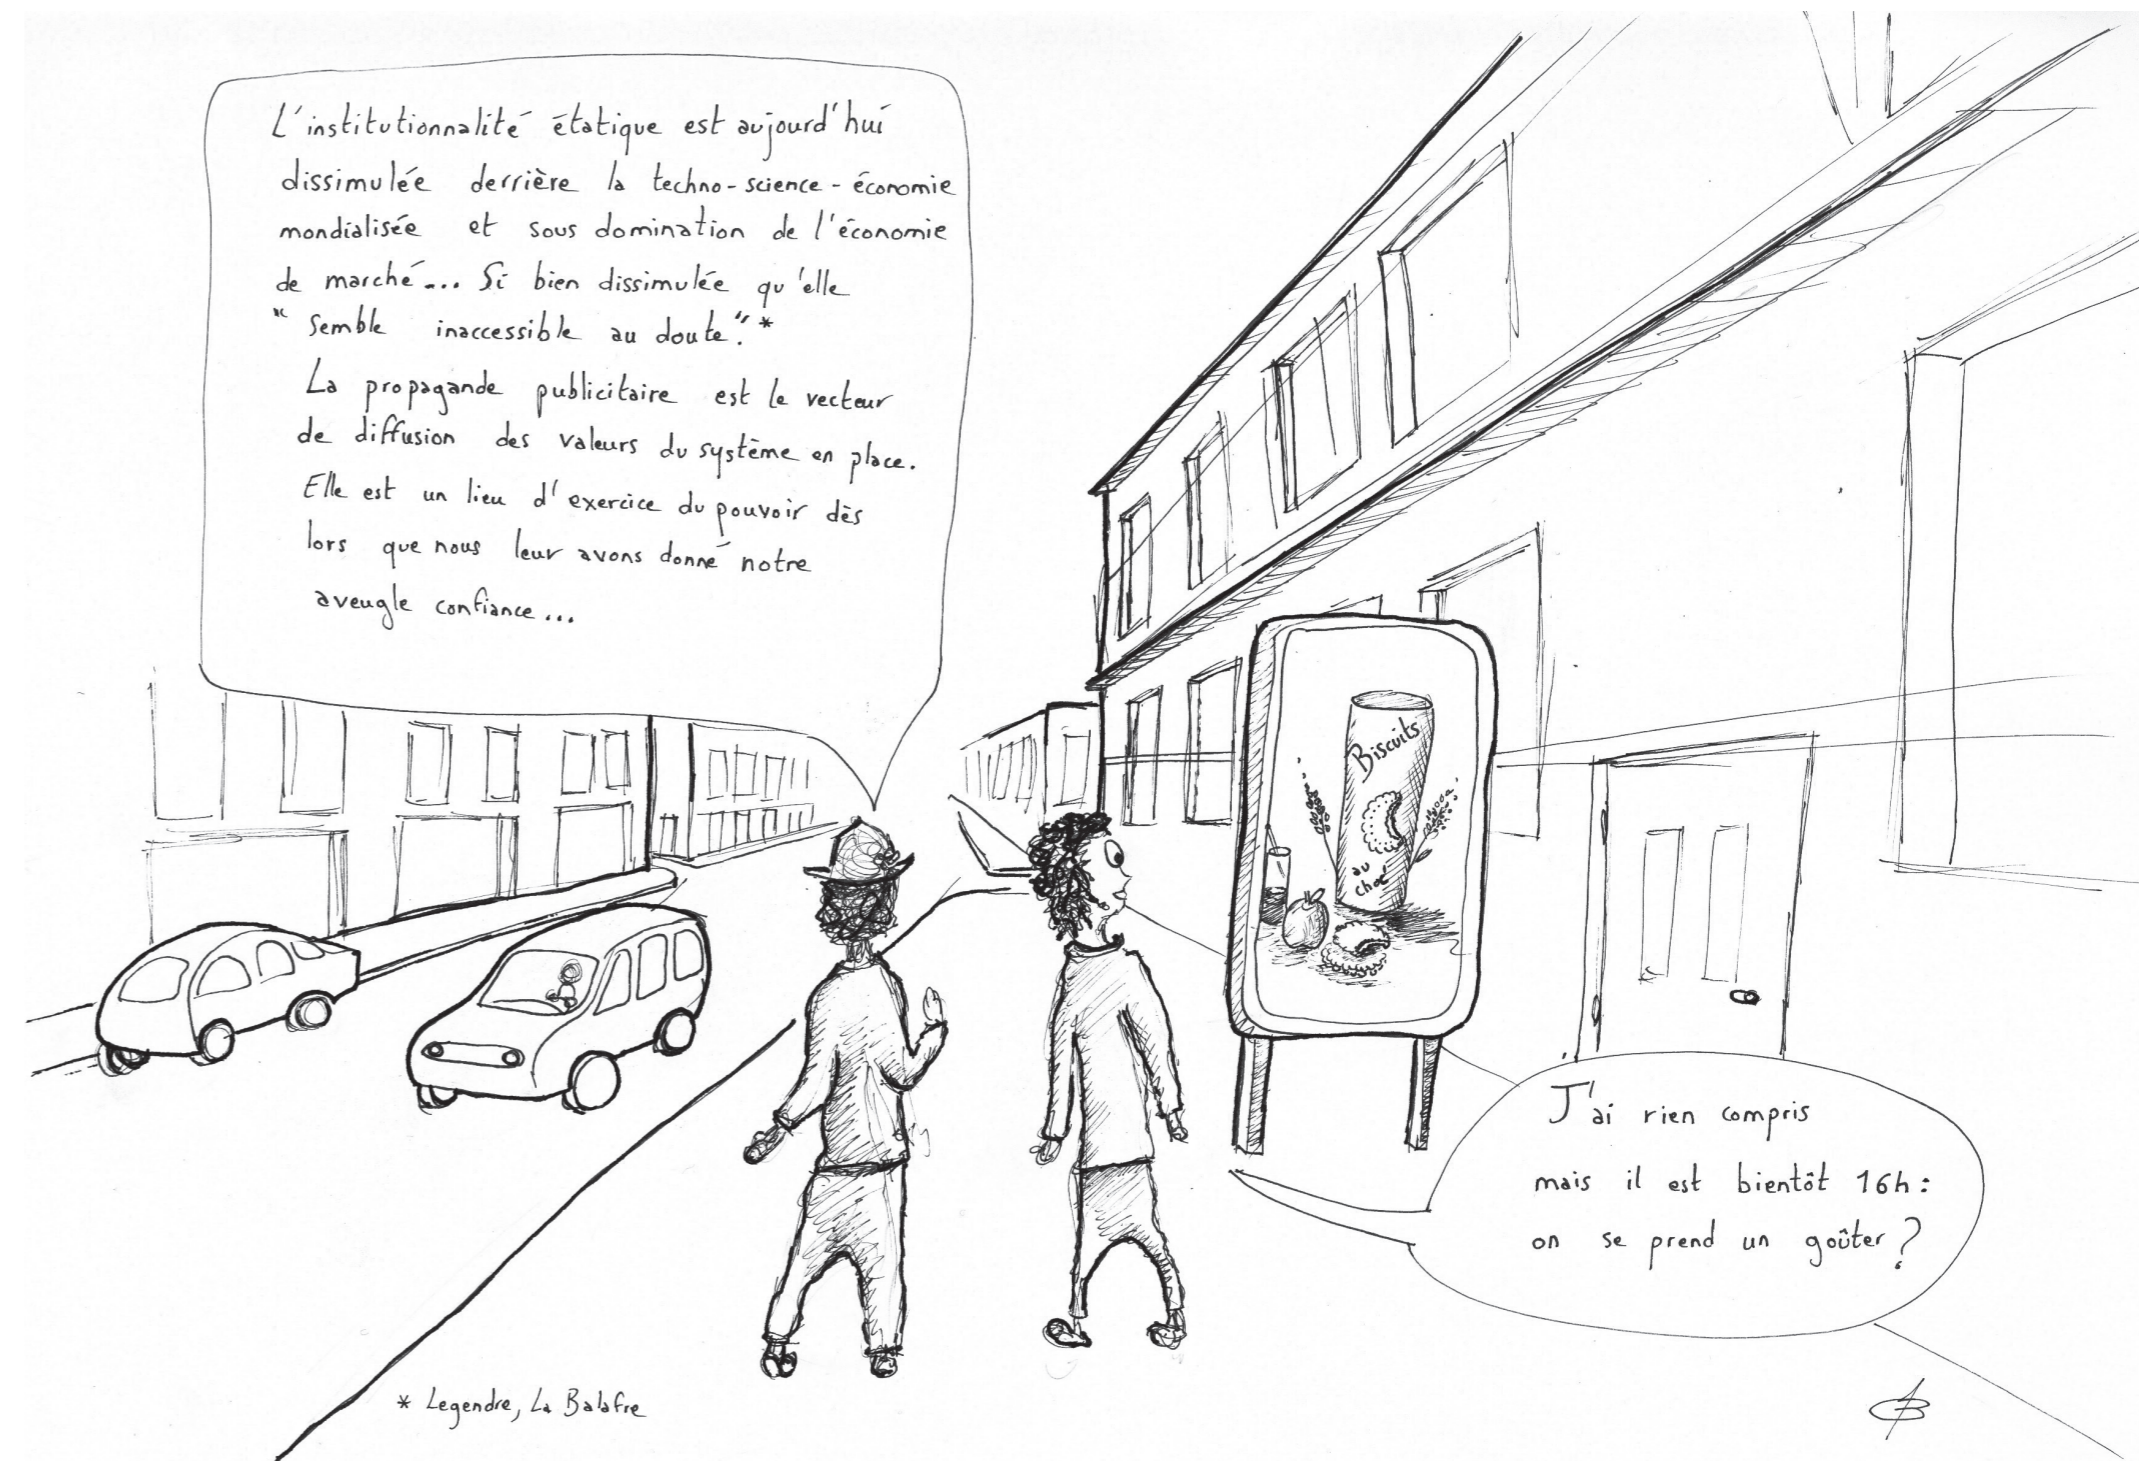 L'institutionnalité étatique est aujourd'hui
dissimulée derrière la techno-science-économie
mondialisée et sous domination de l'économie
de marché... Si bien dissimulée qu'elle
"semble inaccessible au doute".*
La propagande publicitaire est le vecteur
de diffusion des valeurs du système en place.
Elle est un lieu d'exercice du pouvoir dès
lors que nous leur avons donné notre
aveugle confiance...
Biscuits
au
choc'
J'ai rien compris
mais il est bientôt 16h :
on se prend un goûter ?
* Legendre, La Balafre